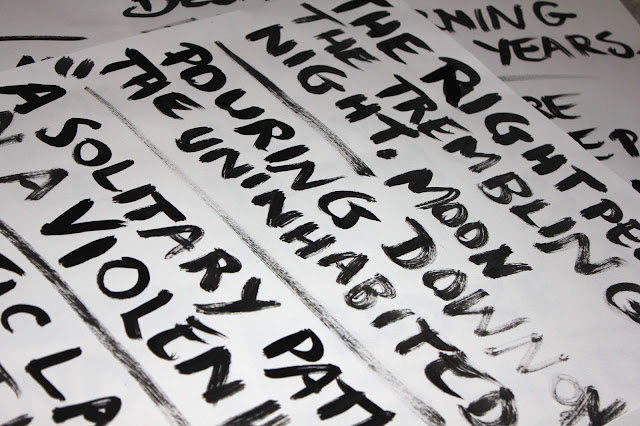 NING
YEARS.
THE RIGHT
THE TREMBLING
NIGHT. MOON
POURING DOWN ON
"THE UNINHABITED
A SOLITARY PAT
A VIOLEN
IC LA